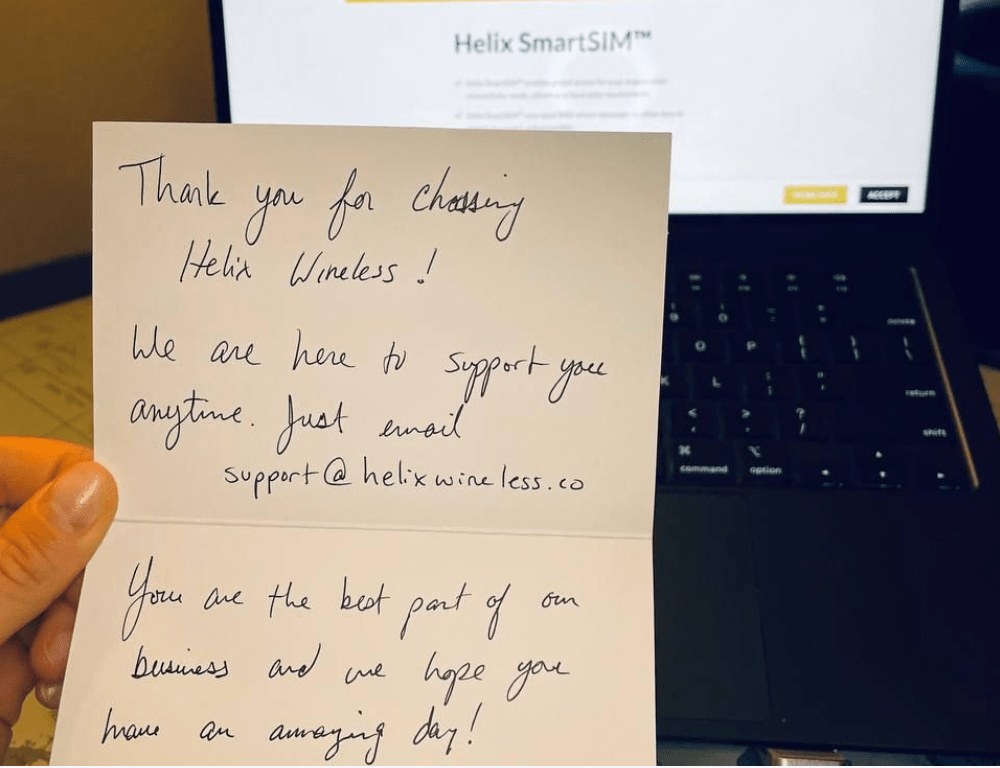 Helix SmartSIM™
ACCEPT
Thank you for chossing
Helix Wireless!
We are here to support you
anytime. Just email
support@helixwireless.co
You are the best part of our
business and we hope you
have an amazing day!
9 0
delete
O P { } | \
K L : ; " '
return
< , > . ? /
shift
⌘ ⌥
command option